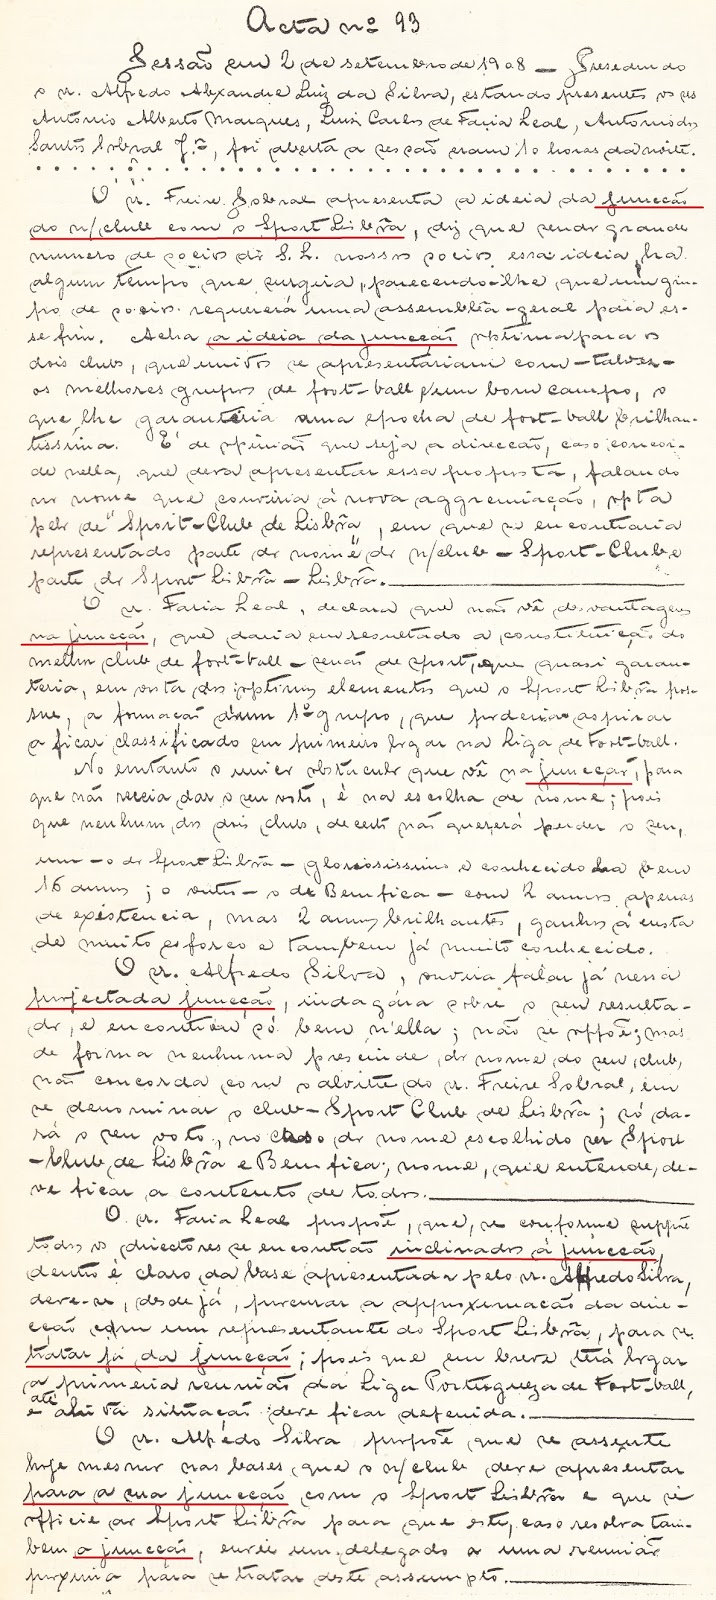 Acta nº 93
Sessão em 2 de setembro de 1908 — Presedindo
o sr. Alfredo Alexandre Luiz da Silva, estando presentes os srs
António Alberto Marques, Luiz Carlos de Faria Leal, Antonio dos
Santos Sobral Jor, foi aberta a sessão eram 10 horas da noite.
O sr. Freire Sobral apresenta a ideia da juncção
do n/club com o Sport Lisbôa, diz que sendo grande
numero de socios do S. L. nossos socios essa ideia, ha
algum tempo que surgiu, parecendo-lhe que um gru-
po de socios requererá uma assemblêa-geral para es-
se fim. Acha a ideia da juncção optima para os
dois clubs, que unidos se apresentariam com-talvez-
os melhores grupos de foot-ball e um bom campo, o
que lhe garantiria uma epocha de foot-ball brilhan-
tissima. É de opinião que seja a direcção, caso concor-
de nella, que deva apresentar essa proposta, falando
no nome que conviria á nova aggremiação, opta
pelo de "Sport-Club de Lisbôa, em que se encontraria
representado parte do nome do n/club - Sport-Club e
parte do Sport Lisbôa - Lisbôa.
O sr. Faria Leal, declara que não vê desvantagens
na juncção, que daria em resultado a constituição do
melhor club de foot-ball - senão de sport, que quasi garan-
teria, em vista dos optimos elementos que o Sport Lisbôa pos-
sue, a formação d'um 1º grupo, que poderia aspirar
a ficar classificado em primeiro logar na Liga de Foot-ball.
No emtanto o unico obstaculo que vê na juncção, para
que não receia dar o seu voto, é na escolha de nome; pois
que nenhum dos dois clubs, decerto não quererá perder o seu,
um - o do Sport Lisbôa - gloriosissimo e conhecido ha bem
16 annos; o outro - o de Bemfica - com 2 annos apenas
de existencia, mas 2 annos brilhantes, ganhos á custa
de muito esforço e tambem já muito conhecido.
O sr. Alfredo Silva, ouvira falar já nessa
projectada juncção, indagára sobre o seu resulta-
do, e encontrou só bem n'ella; não se oppõe; mas
de forma nenhuma prescinde do nome do seu club,
não concorda com o alvitre do sr. Freire Sobral, em
se denominar o club - Sport Club de Lisbôa; só da-
rá o seu voto, no caso do nome escolhido ser Sport
-Club de Lisbôa e Bemfica; nome, que entende, de-
ve ficar a contento de todos.
O sr. Faria Leal propõe, que, se conforme suppõe
todos os directores se encontrão inclinados á juncção,
dentro é claro da base apresentada pelo sr. Alfredo Silva,
deve-se, desde já, procurar a approximação da dire-
cção com um representante do Sport Lisbôa, para se
tratar já da juncção; pois que em breve terá logar
a primeira reunião da Liga Portugueza de Foot-ball,
e até ahi a situação deve ficar defenida.
O sr. Alfredo Silva propõe que se assente
hoje mesmo nas bases, que o n/club deve apresentar
para a sua juncção com o Sport Lisbôa e que se
officie ao Sport Lisbôa para que este, caso resolva tam-
bem a juncção, envie um delegado a uma reunião
proxima para se tratar deste assumpto.